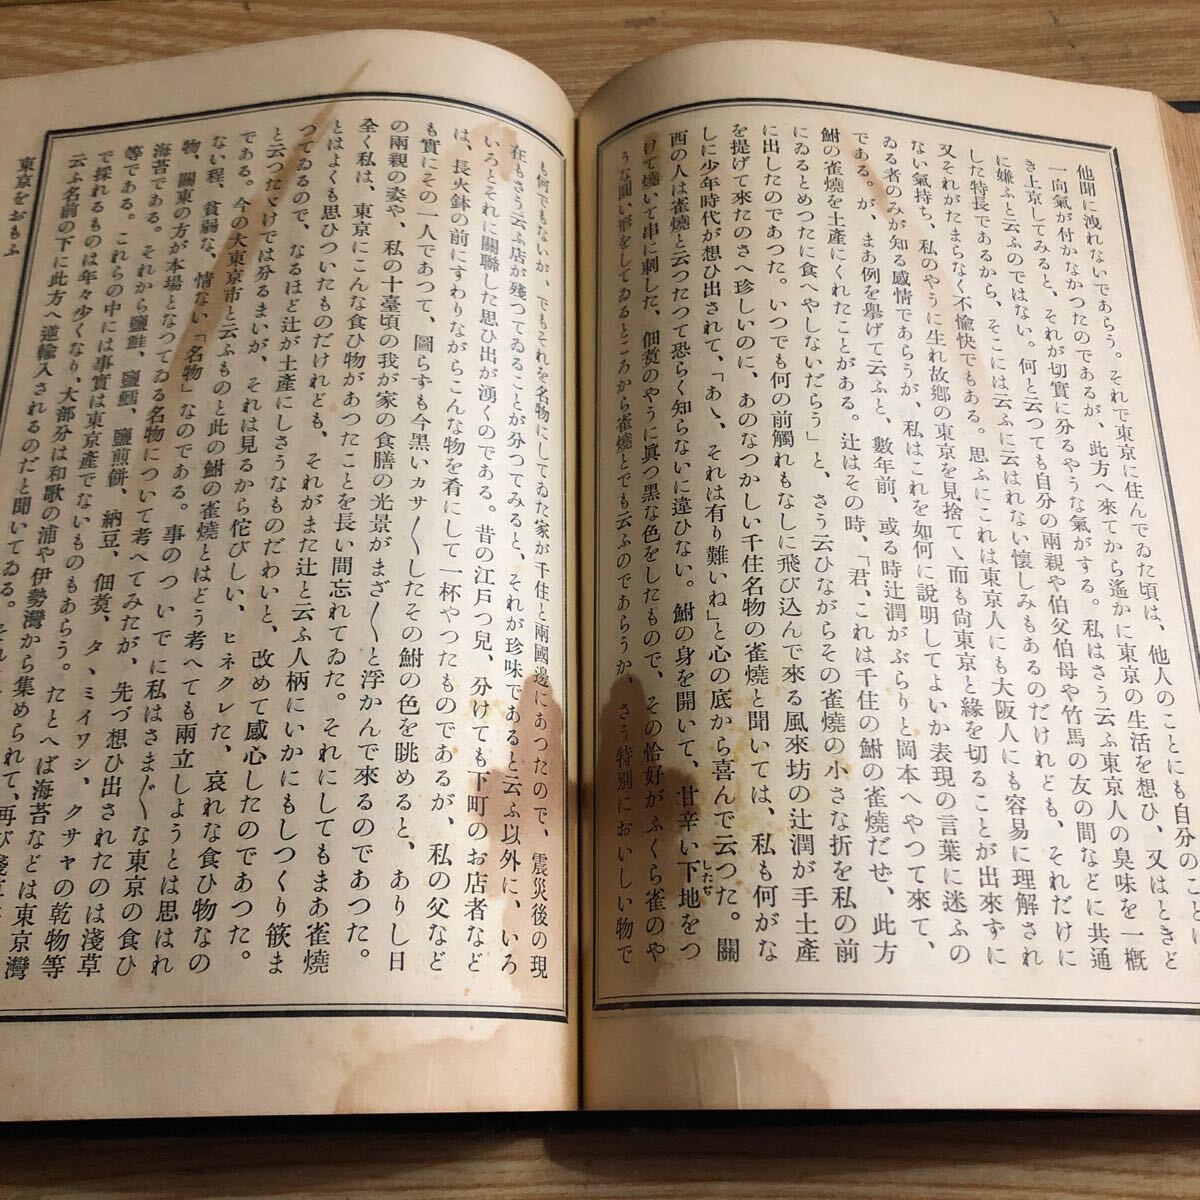 他聞に洩れないであらう。それで東京に住んでゐた頃は、他人のことにも自分のことに
一向氣が付かなかつたのであるが、此方へ來てから遙かに東京の生活を想ひ、又はときど
き上京してみると、それが切實に分るやうな氣がする。私はさう云ふ東京人の臭味を一概
に嫌ふと云ふのではない。何と云つても自分の兩親や伯父伯母や竹馬の友の間などに共通
した特長であるから、そこには云ふに云はれない懷しみもあるのだけれども、それだけに
又それがたまらなく不愉快でもある。思ふにこれは東京人にも大阪人にも容易に理解され
ない氣持ち、私のやうに生れ故鄕の東京を見捨てゝ而も尙東京と緣を切ることが出來ずに
ゐる者のみが知る感情であらうが、私はこれを如何に說明してよいか表現の言葉に迷ふの
である。が、まあ例を擧げて云ふと、數年前、或る時辻潤がぶらりと岡本へやつて來て、
鮒の雀燒を土產にくれたことがある。辻はその時、「君、これは千住の鮒の雀燒だぜ、此方
にゐるとめつたに食へやしないだらう」と、さう云ひながらその雀燒の小さな折を私の前
に出したのであつた。いつでも何の前觸れもなしに飛び込んで來る風來坊の辻潤が手土產
を提げて來たのさへ珍しいのに、あのなつかしい千住名物の雀燒と聞いては、私も何がな
しに少年時代が想ひ出されて、「あゝ、それは有り難いね」と心の底から喜んで云つた。關
西の人は雀燒と云つたつて恐らく知らないに違ひない。鮒の身を開いて、甘辛い下地をつ
したぢ
けて燒いて串に刺した、佃煮のやうに眞つ黑な色をしたもので、その恰好がふくら雀のや
うな圓い形をしてゐるところから雀燒とでも云ふのであらうか、さう特別においしい物で
も何でもないが、でもそれを名物にしてゐた家が千住と兩國邊にあつたので、震災後の現
在もさう云ふ店が殘つてゐることが分つてみると、それが珍味であると云ふ以外に、いろ
いろとそれに關聯した思ひ出が湧くのである。昔の江戶つ兒、分けても下町のお店者など
は、長火鉢の前にすわりながらこんな物を肴にして一杯やつたものであるが、私の父など
も實にその一人であつて、圖らず今黑いカサ〳〵したその鮒の色を眺めると、ありし日
の兩親の姿や、私の十臺頃の我が家の食膳の光景がまざ〳〵と浮かんで來るのであつた。
全く私は、東京にこんな食ひ物があつたことを長い間忘れてゐた。それにしてもまあ雀燒
とはよくも思ひついたものだけれども、それがまた辻と云ふ人柄にいかにもしつくり篏ま
つてゐるので、なるほど辻が土產にしさうなものだわいと、改めて感心したのであつた。
と云つたゞけでは分るまいが、それは見るから佗びしい、ヒネクレた、哀れな食ひ物なの
である。今の大東京市と云ふものと此の鮒の雀燒とはどう考へても兩立しようとは思はれ
ない程、貧弱な、情ない「名物」なのである。事のついでに私はさま〴〵な東京の食ひ
物、關東の方が本場となつてゐる名物について考へてみたが、先づ想ひ出されたのは淺草
海苔である。それから鹽鮭、鹽鱈、鹽煎餅、納豆、佃煮、タヽミイワシ、クサヤの乾物等
等である。これらの中には事實は東京產でないものもあらう。たとへば海苔などは東京灣
で採れるものは年々少くなり、大部分は和歌の浦や伊勢灣から集められて、再び淺草
云ふ名前の下に此方へ逆輸入されるのだと聞いてゐる。
東京をおもふ